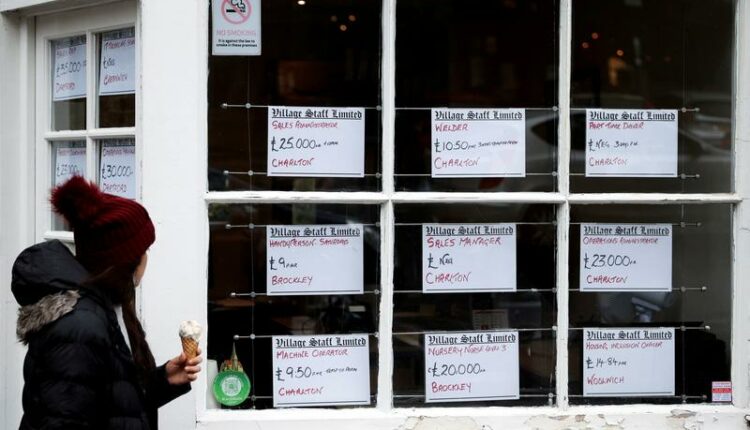 NO SMOKING
It is against the law to
smoke in these premises
£35,000
DARTFORD
GREENWICH
£30,000
CHARLTON
Village Staff Limited
SALES ADMINISTRATOR
£25,000
CHARLTON
Village Staff Limited
WELDER
£10.50
CHARLTON
Village Staff Limited
PART TIME DRIVER
£NEG
CHARLTON
Village Staff Limited
HANDYPERSON
£9
BROCKLEY
Village Staff Limited
SALES MANAGER
£NEG
CHARLTON
Village Staff Limited
OPERATIONS ADMINISTRATOR
£23,000
CHARLTON
Village Staff Limited
MACHINE OPERATOR
£9.50
CHARLTON
Village Staff Limited
NURSERY NURSE
£20,000
BROCKLEY
Village Staff Limited
HOUSING INCLUSION OFFICER
£14.84
WOOLWICH